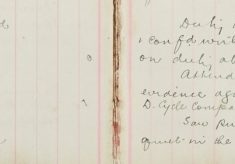 Duty
& confd with
on duty at
Attend
evidence aga
D. Cycle Compa
Saw
quiet in the